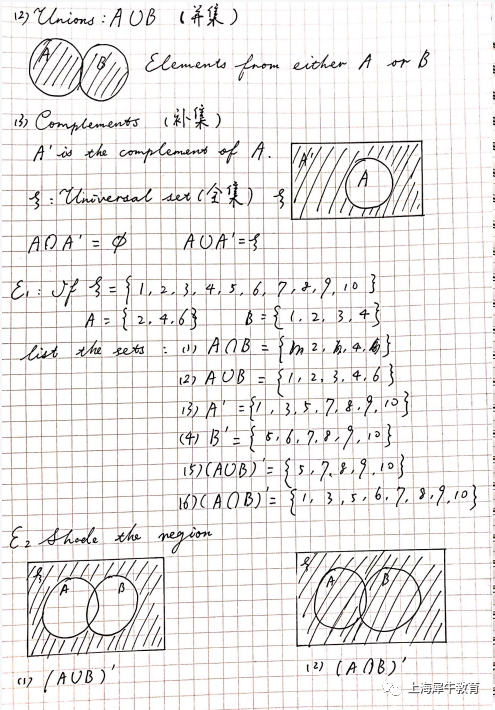 (2) Unions: A∪B (并集)
A B Elements from either A or B
(3) Complements (补集)
A' is the complement of A.
A' A
ξ: Universal set (全集) ξ
A∩A' = ϕ A∪A' = ξ
E1: If ξ = { 1, 2, 3, 4, 5, 6, 7, 8, 9, 10 }
A = { 2, 4, 6 } B = { 1, 2, 3, 4 }
list the sets: (1) A∩B = { 2, 4, }
(2) A∪B = { 1, 2, 3, 4, 6 }
(3) A' = { 1, 3, 5, 7, 8, 9, 10 }
(4) B' = { 5, 6, 7, 8, 9, 10 }
(5) (A∪B)' = { 5, 7, 8, 9, 10 }
(6) (A∩B)' = { 1, 3, 5, 6, 7, 8, 9, 10 }
E2 Shade the region
ξ A B
ξ A B
(1) (A∪B)'
(2) (A∩B)'
上海犀牛教育